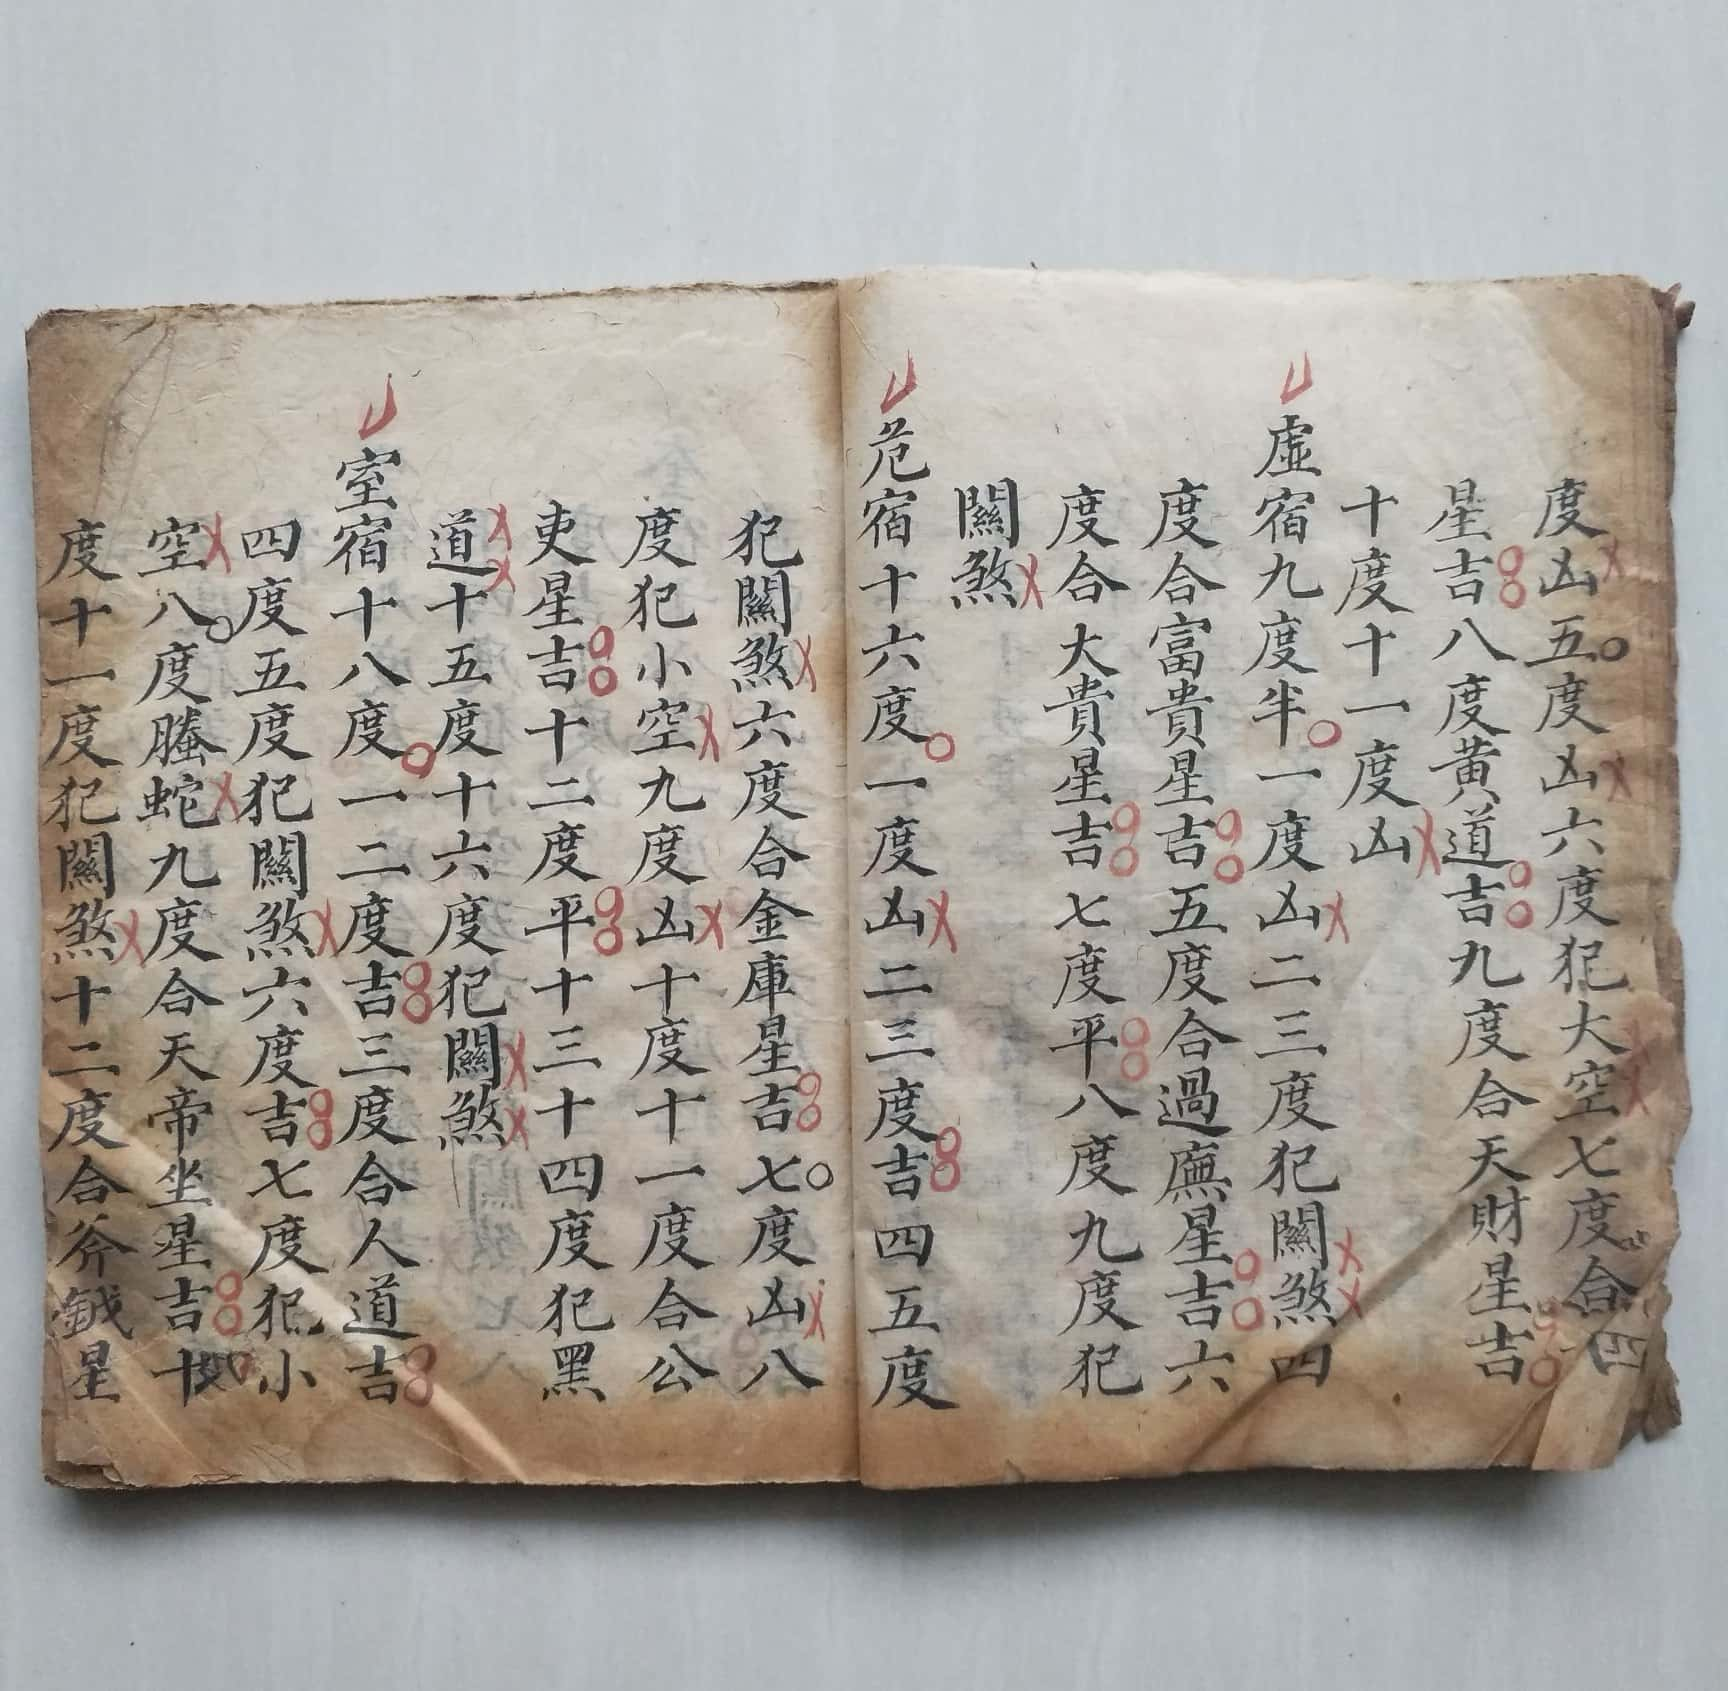 度凶五度凶六度犯大空七度合四
星吉八度黄道吉九度合天財星吉
十度十一度凶
虛宿九度半一度凶二三度犯關煞四
度合富貴星吉五度合過廡星吉六
度合大貴星吉七度平八度九度犯
關煞
危宿十六度一度凶二三度吉四五度
犯關煞六度合金庫星吉七度凶八
度犯小空九度凶十度十一度合公
吏星吉十二度平十三十四度犯黑
道十五度十六度犯關煞
室宿十八度一二度吉三度合人道吉
四度五度犯關煞六度吉七度犯小
空八度螣蛇九度合天帝坐星吉十
度十一度犯關煞十二度合斧鉞星